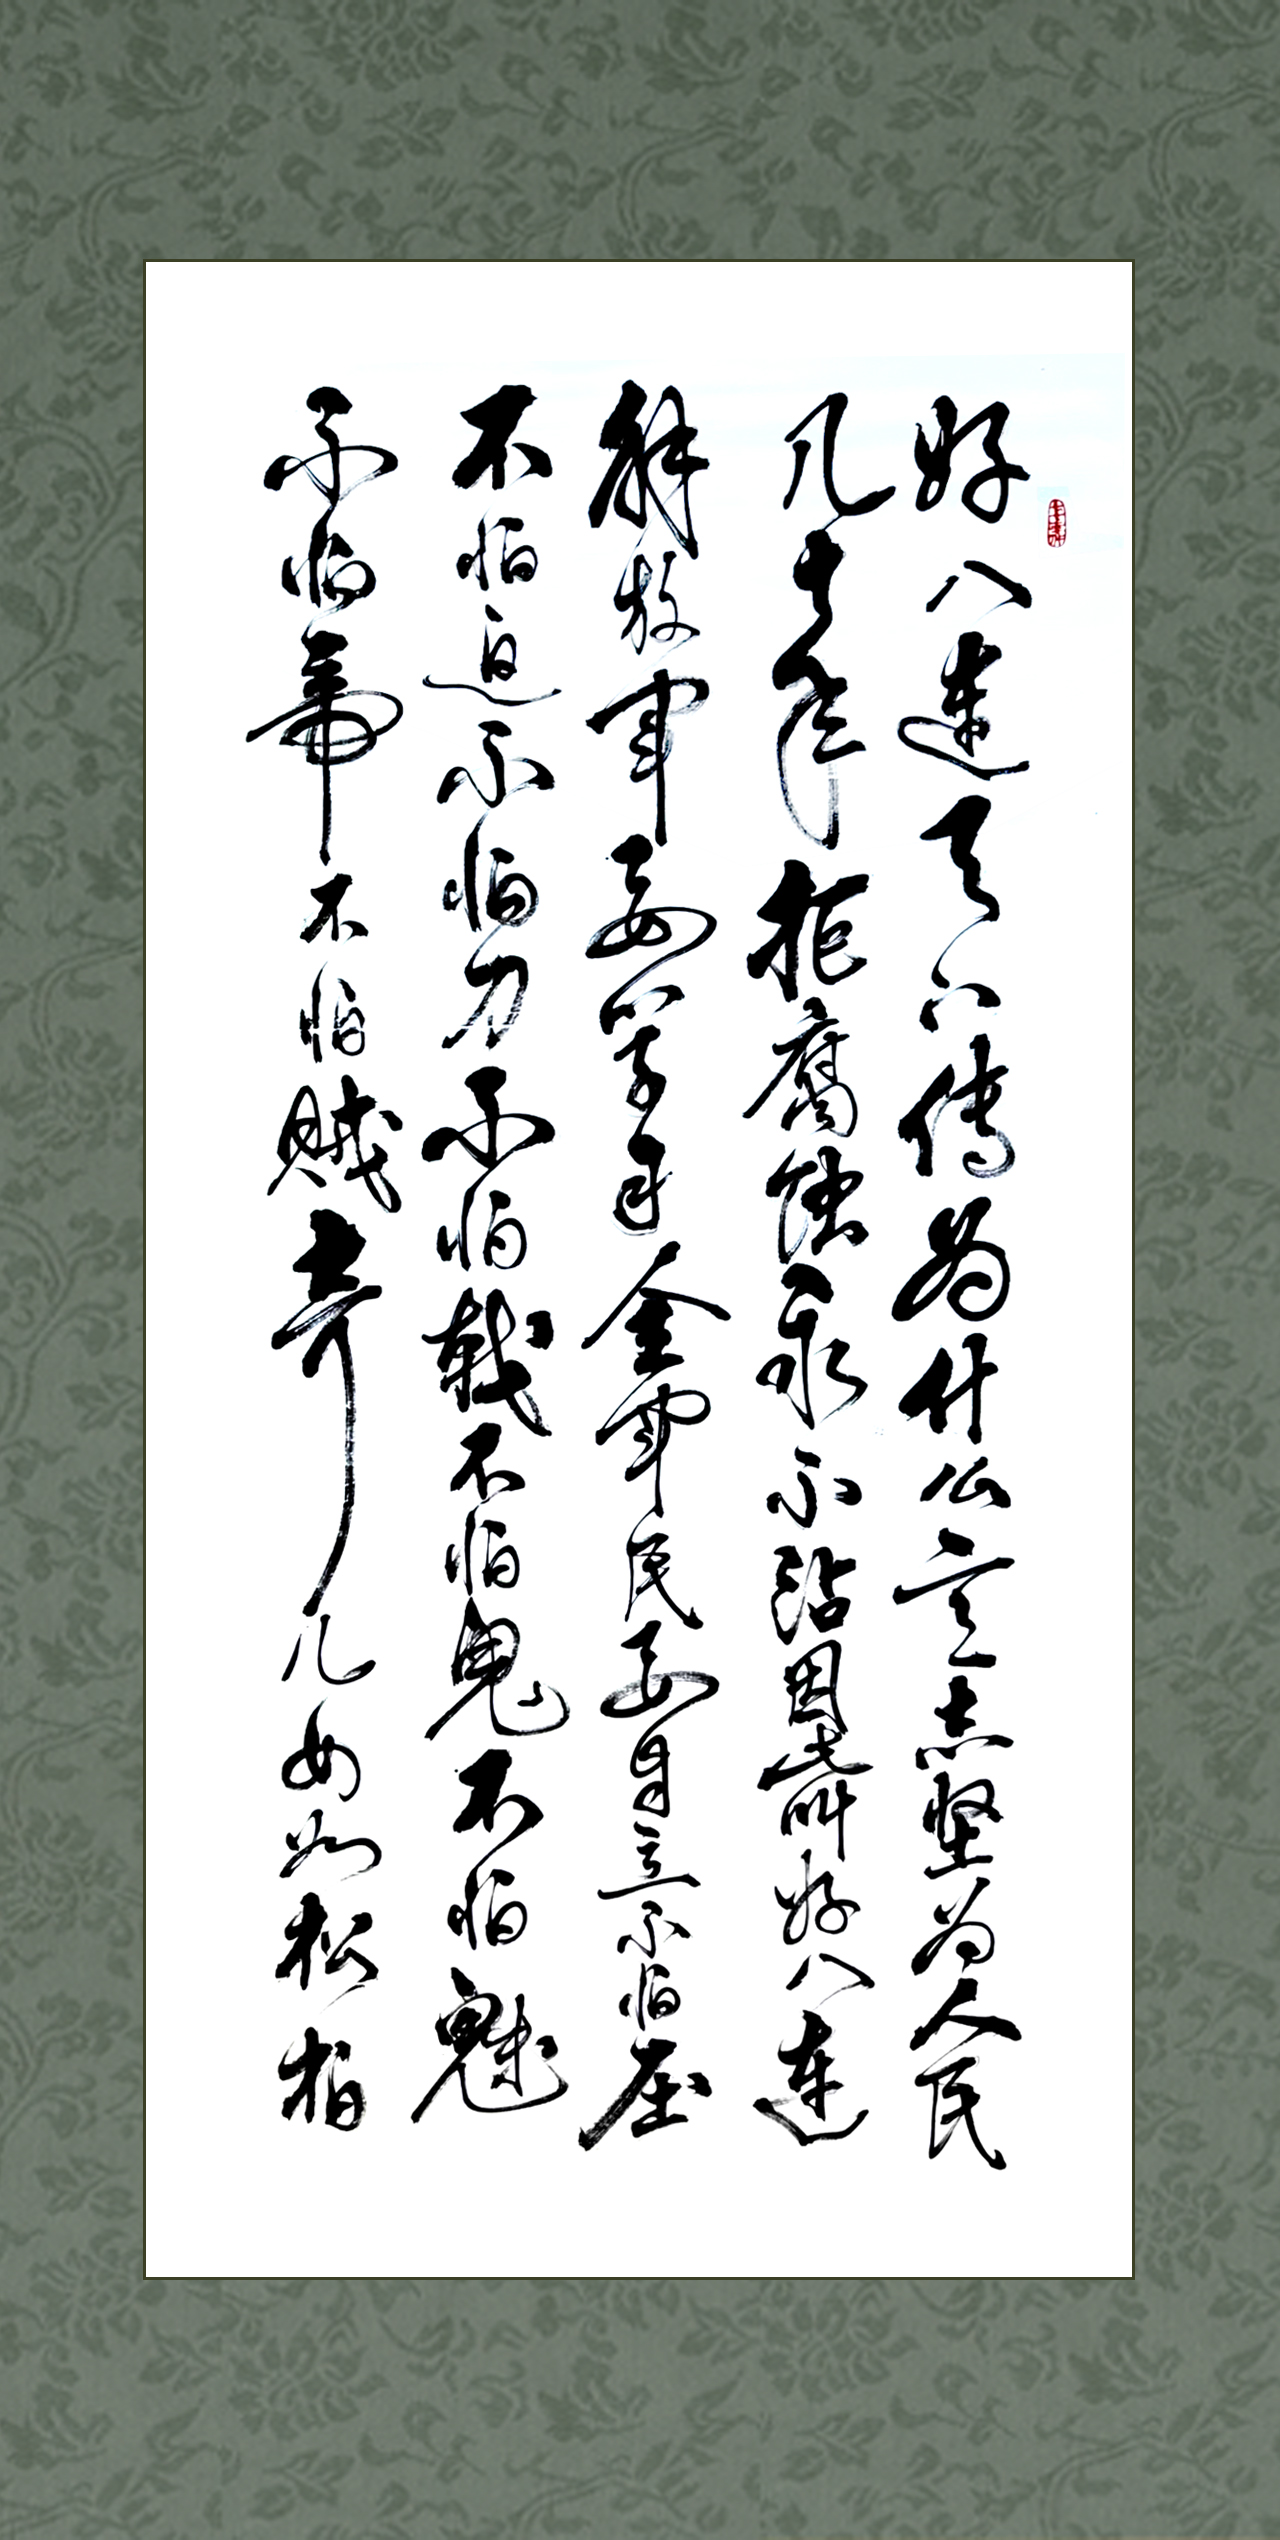 好八连天下传为什么意志坚为人民
几十年拒腐蚀永不沾因此叫好八连
解放军要学习全军民要自立不怕压
不怕迫不怕刀不怕戟不怕鬼不怕魅
不怕帝不怕贼奇儿女如松柏